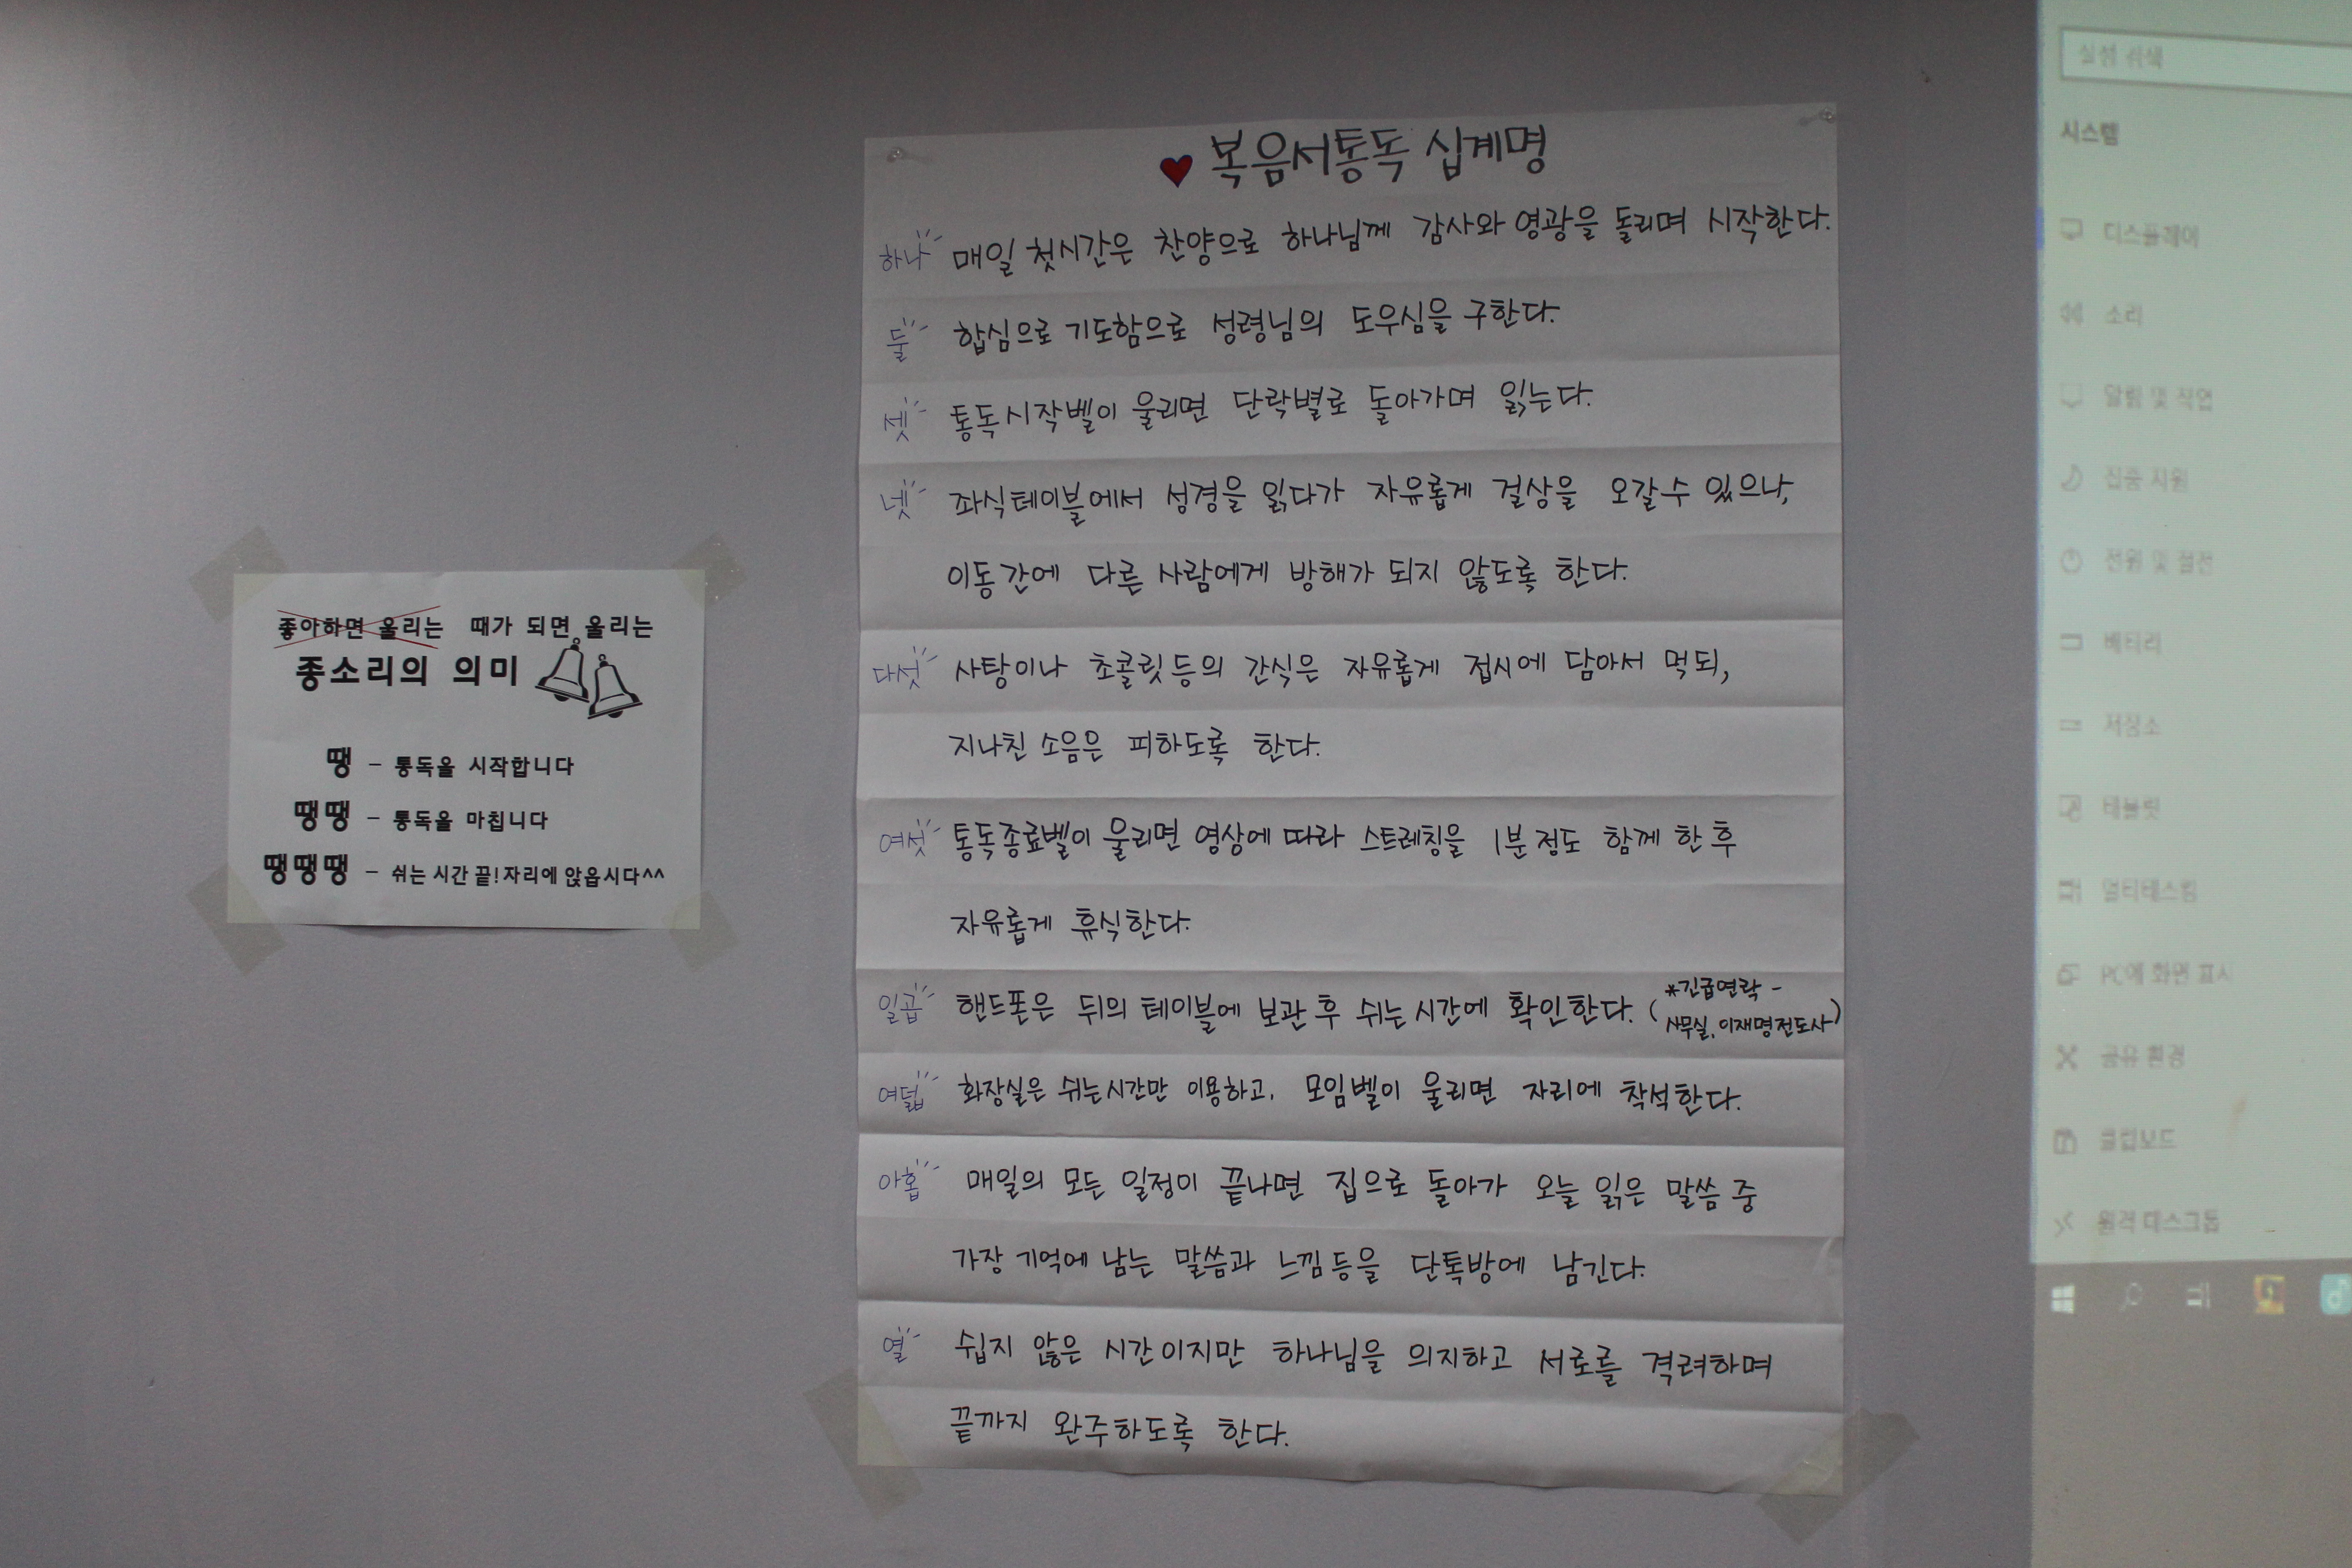 좋아하면 울리는 때가 되면 울리는
종소리의 의미
땡 - 통독을 시작합니다
땡땡 - 통독을 마칩니다
땡땡땡 - 쉬는 시간 끝! 자리에 앉읍시다^^
♥ 복음서통독 십계명
하나 매일 첫시간은 찬양으로 하나님께 감사와 영광을 돌리며 시작한다.
둘 합심으로 기도함으로 성령님의 도우심을 구한다.
셋 통독시작벨이 울리면 단락별로 돌아가며 읽는다.
넷 좌식테이블에서 성경을 읽다가 자유롭게 걸상을 오갈수 있으나,
이동간에 다른 사람에게 방해가 되지 않도록 한다.
다섯 사탕이나 초콜릿등의 간식은 자유롭게 접시에 담아서 먹되,
지나친 소음은 피하도록 한다.
여섯 통독종료벨이 울리면 영상에 따라 스트레칭을 1분정도 함께 한 후
자유롭게 휴식한다.
일곱 핸드폰은 뒤의 테이블에 보관 후 쉬는시간에 확인한다. (*긴급연락 -
사무실, 이재명전도사)
여덟 화장실은 쉬는시간만 이용하고, 모임벨이 울리면 자리에 착석한다.
아홉 매일의 모든 일정이 끝나면 집으로 돌아가 오늘 읽은 말씀 중
가장 기억에 남는 말씀과 느낌등을 단톡방에 남긴다.
열 쉽지 않은 시간이지만 하나님을 의지하고 서로를 격려하며
끝까지 완주하도록 한다.
설정 검색
시스템
디스플레이
소리
알림 및 작업
집중 지원
전원 및 절전
배터리
저장소
태블릿
멀티태스킹
PC에 화면 표시
공유 환경
클립보드
원격 데스크톱